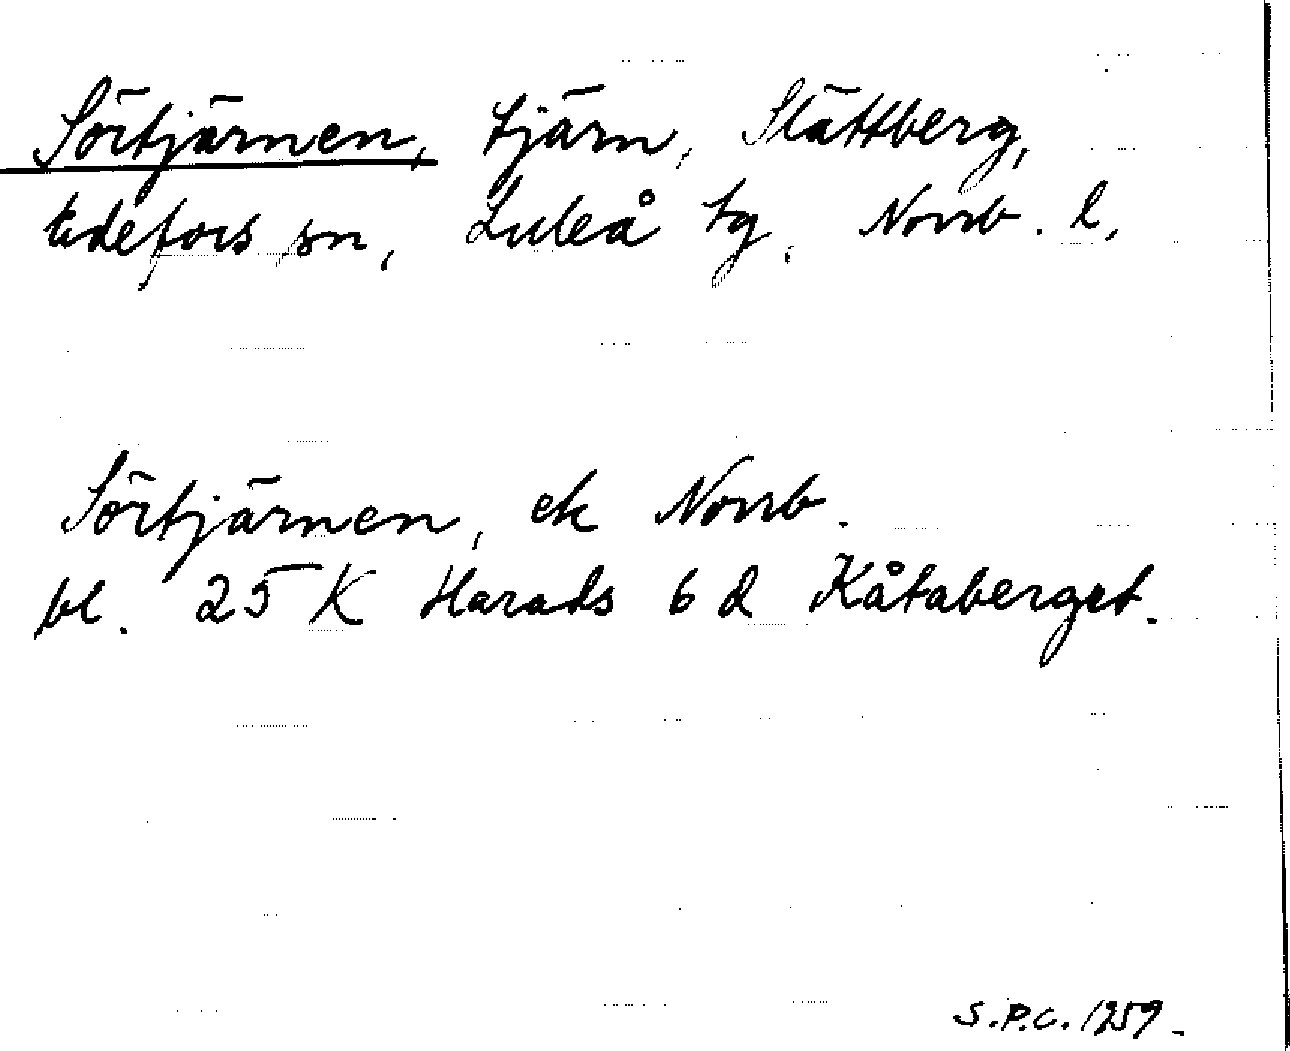 Sörtjärnen, tjärn, Slättberg,
Edefors sn, Luleå tg. Norrb. l.
Sörtjärnen, ek Norrb.
bl. 25 K Harads 6 d Kåtaberget.
S.P.C. 1959.